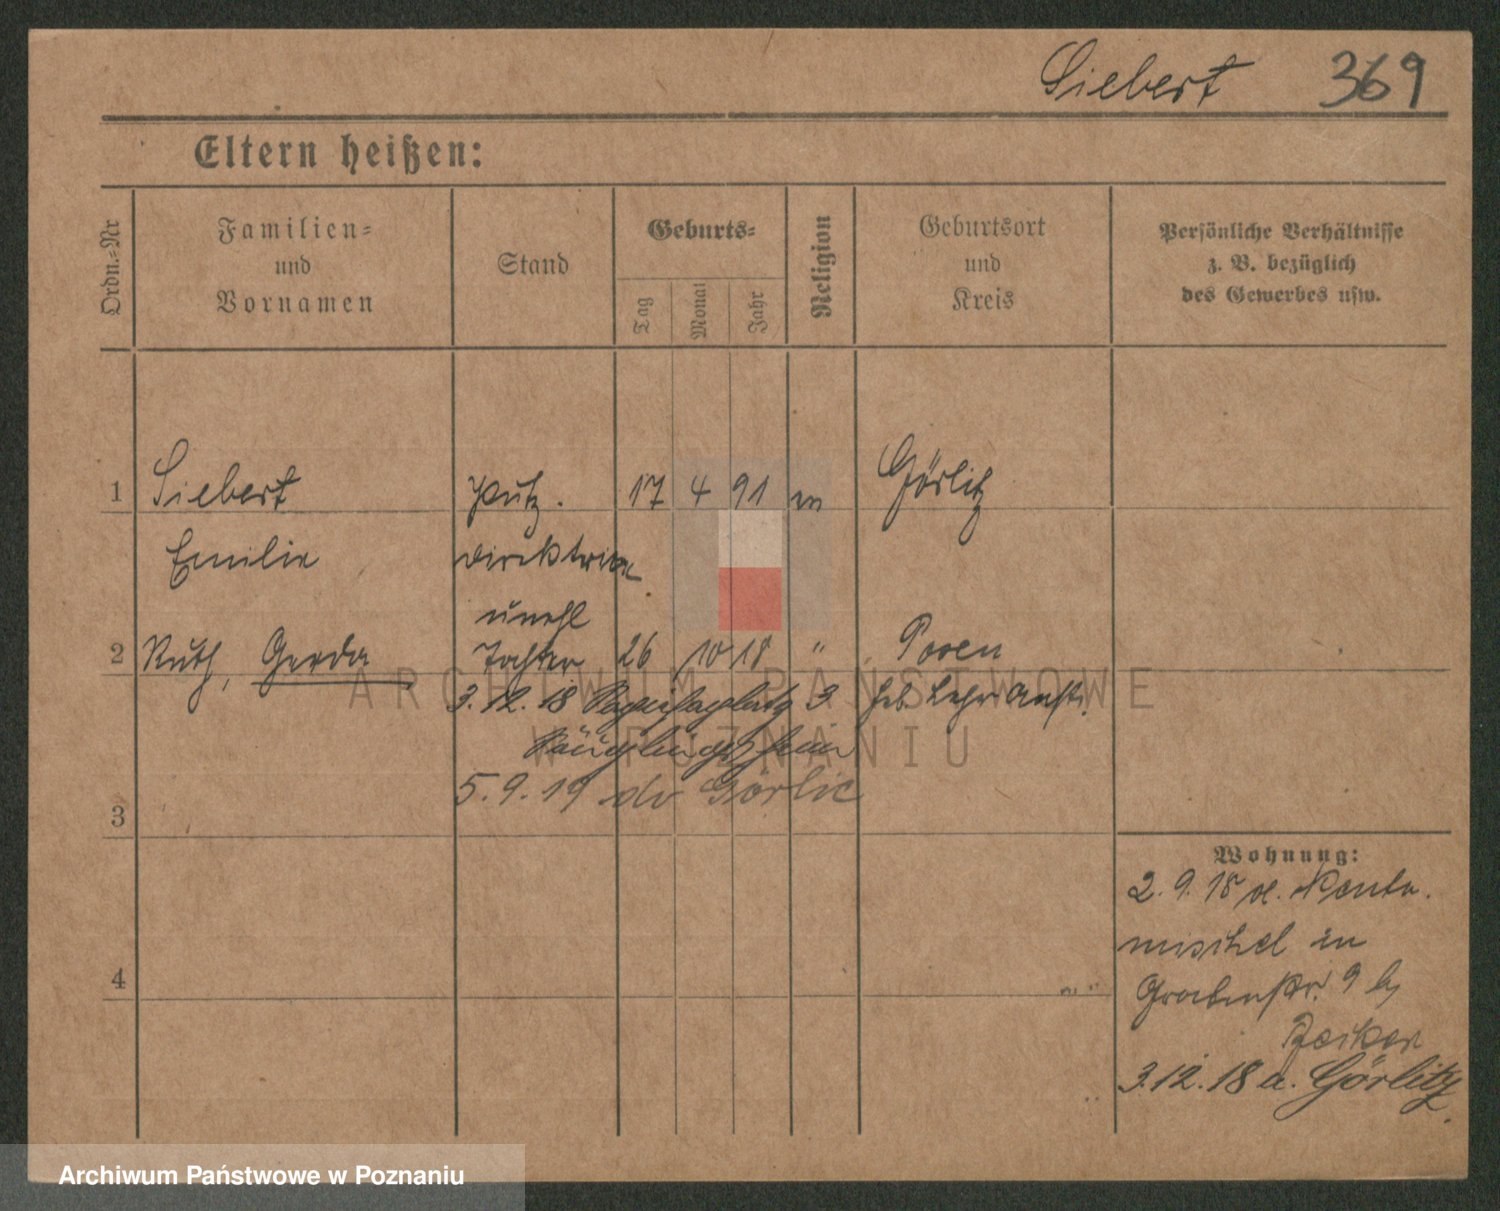 Siebert 369
Eltern heißen:
Ordn.-Nr
Familien-
und
Vornamen
Stand
Geburts-
Tag
Monat
Jahr
Religion
Geburtsort
und
Kreis
Persönliche Verhältnisse
z. B. bezüglich
des Gewerbes usw.
1 Siebert Putz. 17 4 91 Görlitz
Emilie direktrice
unehl
2 Ruth, Gerda Tochter 26 10 18 " Posen
3.12.18 3 Heb. Lehr Anst.
Säuglingsheim
5.9.19 Görlic
3
Wohnung:
2.9.18 v.
mischel in
4 Grabenstr. 9 b,
3.12.18 a. Görlitz.
ARCHIWUM PAŃSTWOWE
W POZNANIU
Archiwum Państwowe w Poznaniu